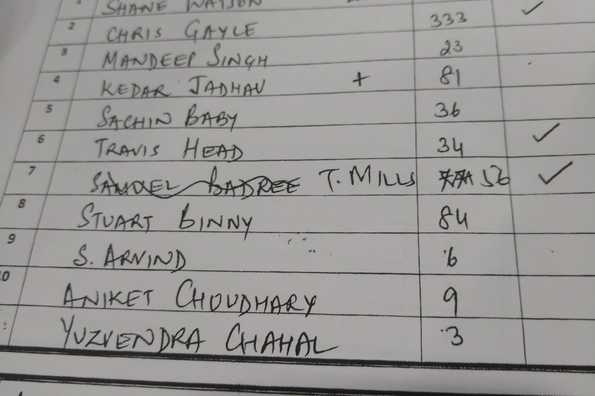 1 SHANE WATSON ✓
2 CHRIS GAYLE 333
3 MANDEEP SINGH 23
4 KEDAR JADHAV + 81
5 SACHIN BABY 36
6 TRAVIS HEAD 34 ✓
7 SAMUEL BADREE T. MILLS 56 ✓
8 STUART BINNY 84
9 S. ARVIND 6
10 ANIKET CHOUDHARY 9
YUZVENDRA CHAHAL 3